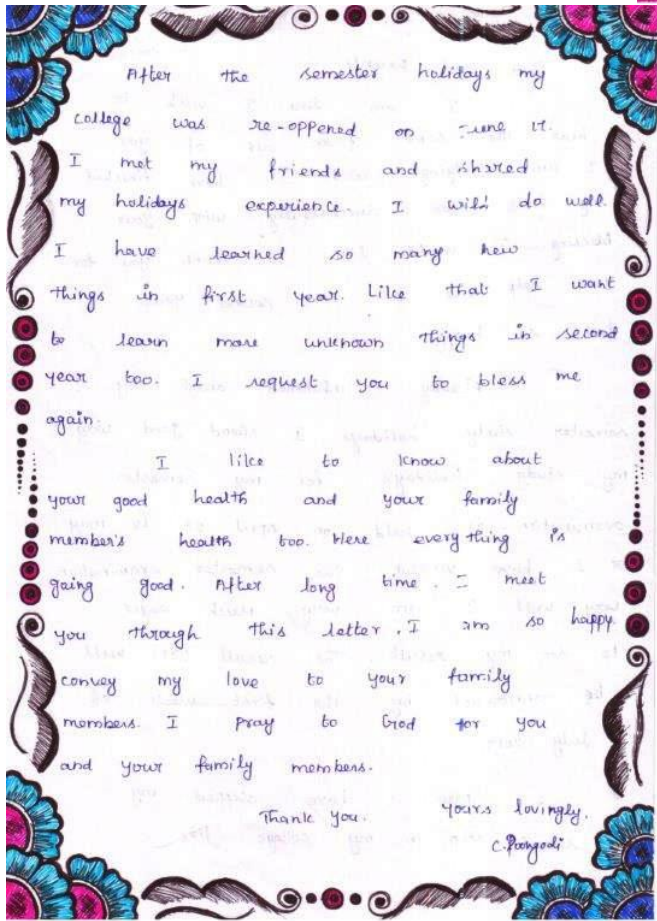 After the semester holidays my
college was re-oppened on June 17.
I met my friends and shared
my holidays experience. I will do well.
I have learned so many new
things in first year. Like that I want
to learn more unknown things in second
year too. I request you to bless me
again.
I like to know about
your good health and your family
member's health too. Here every thing is
going good. After long time. I meet
you through this letter. I am so happy.
convey my love to your family
members. I pray to God for you
and your family members.
Thank you. yours lovingly.
C. Poongodi